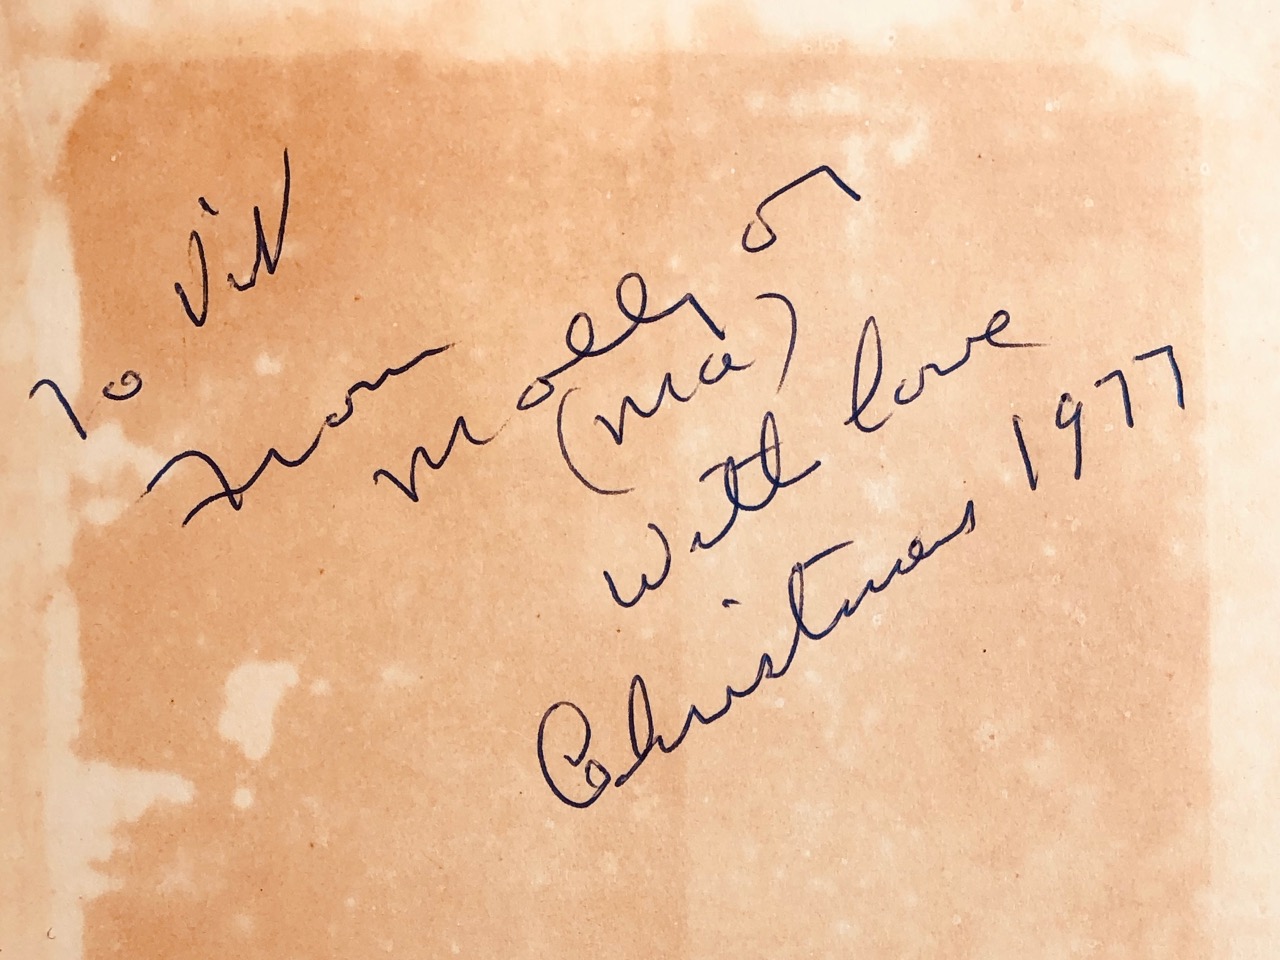 To Jill
From
Molly or
(Ma)
With love
Christmas 1977